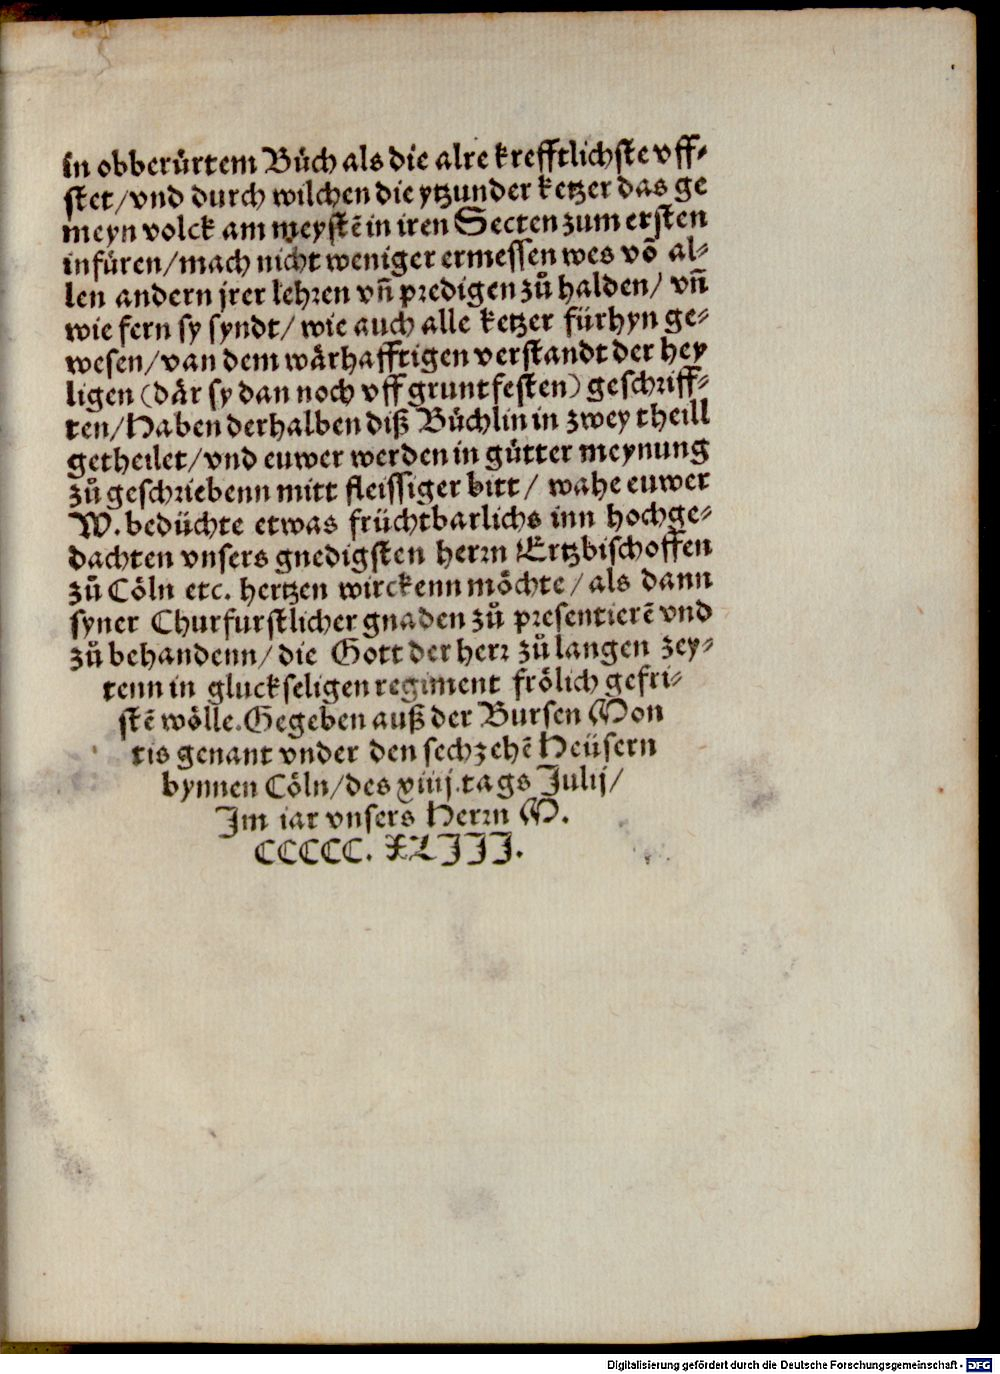 in obberürtem Büch als die alre krefftlichste vff-
stet/vnd durch wilchen die ytzunder ketzer das ge
meyn volck am meystē in iren Secten zum ersten
infüren/mach nicht weniger ermessen wes vō al-
len andern jrer lehren vñ predigen zů halden/ vñ
wie fern sy syndt/ wie auch alle ketzer fürhyn ge-
wesen/van dem wärhafftigen verstandt der hey
ligen (där sy dan noch vff gruntfesten) geschriff-
ten/Haben derhalben diß Büchlin in zwey theill
getheilet/vnd euwer werden in gütter meynung
zů geschriebenn mitt fleissiger bitt/ wahe euwer
W. bedüchte etwas früchtbarlichs inn hochge-
dachten vnsers gnedigsten herrn Ertzbischoffen
zů Cöln etc. hertzen wirckenn möchte/als dann
syner Churfurstlicher gnaden zů presentierē vnd
zů behandenn/die Gott der herr zů langen zey-
tenn in gluckseligen regiment frölich gefri-
stē wölle. Gegeben auß der Bursen Mon
tis genant vnder den sechzehē Heüsern
bynnen Cöln/des xiiij. tags Julij/
Im iar vnsers Herrn M.
CCCCC. XLIII.
Digitalisierung gefördert durch die Deutsche Forschungsgemeinschaft - DFG